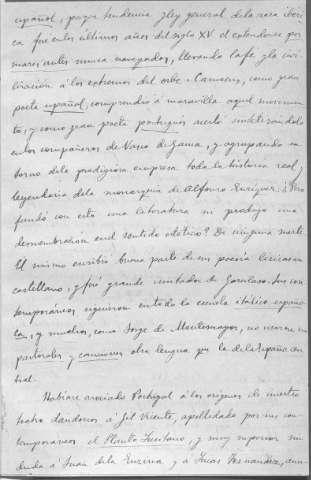 español, porque tendencia y ley general de la raza ibéri-
ca fué en los últimos años del siglo XV el extenderse por
mares antes nunca navegados, llevando la fe y la civi-
lización á los extremos del orbe. Camoens, como gran
poeta español, comprendió á maravilla aquel movimien-
to, y como gran poeta portugués acertó sintetizándolo
en los compañeros de Vasco de Gama, y agrupando en
torno de la prodigiosa empresa toda la historia real y
legendaria de la monarquía de Alfonso Enríquez. ¿Pero
fundó con esto una literatura ni produjo una
desmembración en el sentido estético? De ninguna suerte.
El mismo escribió buena parte de sus poesías líricas en
castellano, y fué grande imitador de Garcilaso. Sus con-
temporáneos siguieron en todo la escuela ítalico-españo-
la, y muchos, como Jorge de Montemayor, no usaron en
pastorales y canciones otra lengua que la de la España cen-
tral.
Habíase asociado Portugal á los orígenes de nuestro
teatro dándonos á Gil Vicente, apellidado por sus con-
temporáneos el Plauto Lusitano, y muy superior sin
duda á Juan de la Enzina y á Lucas Fernández, aun-